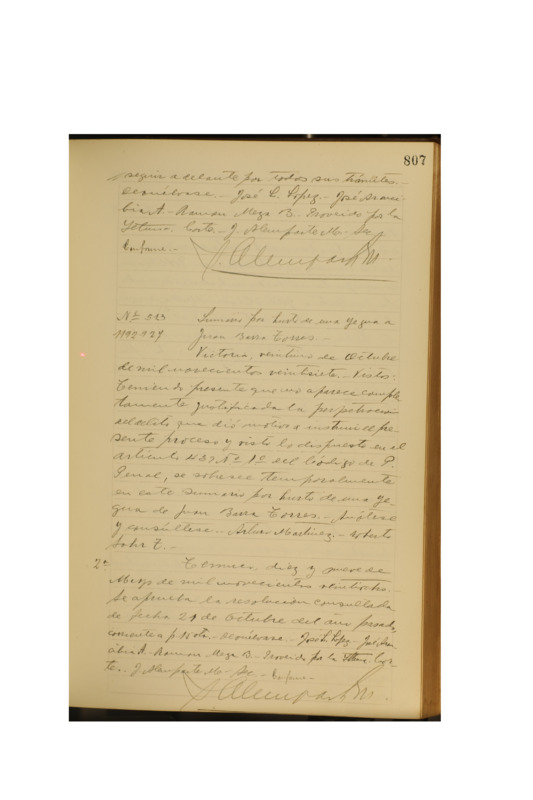 807
seguir adelante por todos sus trámites.-
Devuélvase.- José L. López.- José Arancibia A.- Ramon Meza B.- Proveido por la
Iltma. Corte.- J. Alemparte M.- Sec.
Conforme.-
J. Alemparte M.
Nº 513
Sumario por hurto de una yegua a
Juan Barra Torres.-
Victoria, veintiuno de Octubre
de mil novecientos veintisiete.- Vistos:
Teniendo presente que no aparece comple-
tamente justificada la perpetracion
del delito que dió motivo a instruir el pre-
sente proceso y visto lo dispuesto en el
artículo 437 Nº 1º del Código de P.
Penal, se sobresee temporalmente
en este sumario por hurto de una ye-
gua de Juan Barra Torres.- Anótese
y consúltese.- Arturo Martinez.- Roberto
2ª
Temuco, diez y nueve de
Marzo de mil novecientos veintiocho.-
Se aprueba la resolucion consultada
de fecha 21 de Octubre del año pasado,
corriente a f. 10 vta.- Devuélvase.- José L. López.- José Aran-
cibia A.- Ramon Meza B.- Proveido por la Iltma. Cor-
te.- J. Alemparte M.- Sec.- Conforme.-
J. Alemparte M.